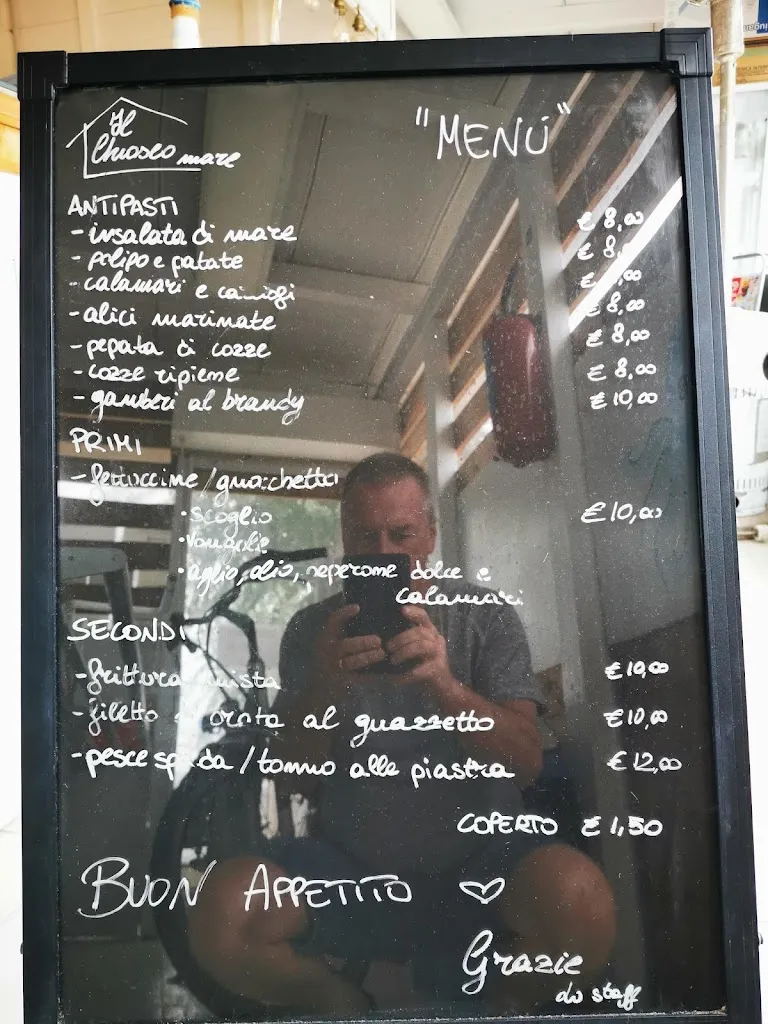 Il
Chiosco mare
"MENÚ"
ANTIPASTI
- insalata di mare € 8,00
- polipo e patate € 8,
- calamari e carciofi € ,00
- alici marinate € 8,00
- pepata di cozze € 8,00
- cozze ripiene € 8,00
- gamberi al brandy € 10,00
PRIMI
- fettuccine/gnocchetto
• scoglio € 10,00
• vongole
• aglio, olio, peperone dolce e
calamari
SECONDI
- frittura mista € 10,00
- filetto orata al guazzetto € 10,00
- pesce spada/tonno alla piastra € 12,00
COPERTO € 1,50
BUON APPETITO
Grazie
do staff